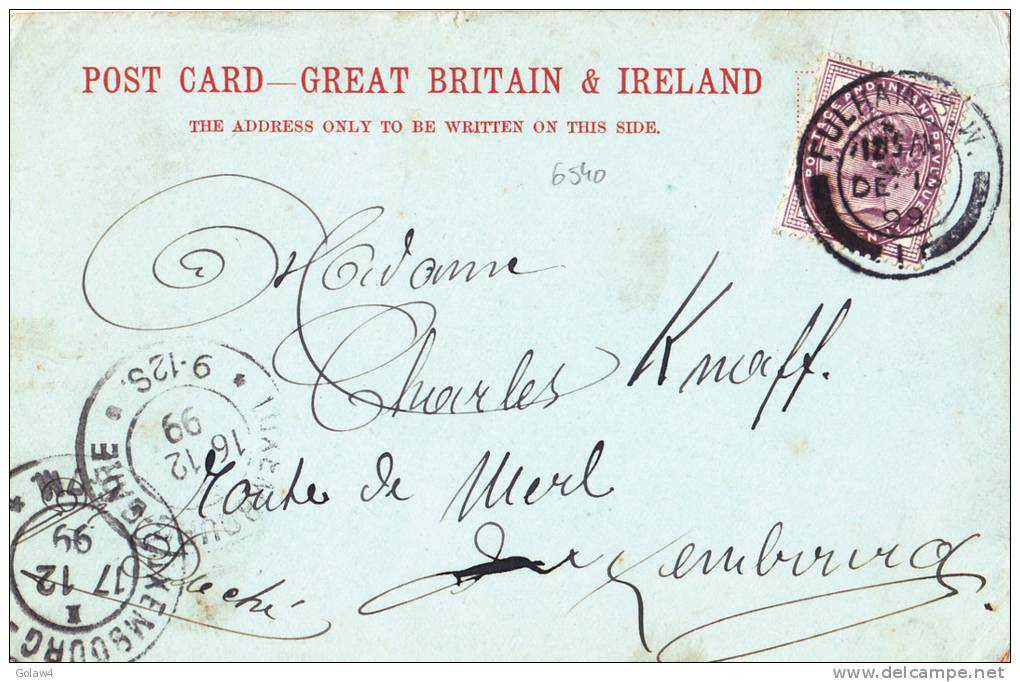 POST CARD—GREAT BRITAIN & IRELAND
THE ADDRESS ONLY TO BE WRITTEN ON THIS SIDE.
6540
FULHAM S.W.
DE 1
99
1
POSTAGE AND INLAND REVENUE
Madame
Charles Knaff.
Route de Merl
Luxembourg
Duché
LUXEMBOURG GARE
9-12S.
16 12
99
LUXEMBOURG-
17 12
99
I
Golaw4
delcampe.net